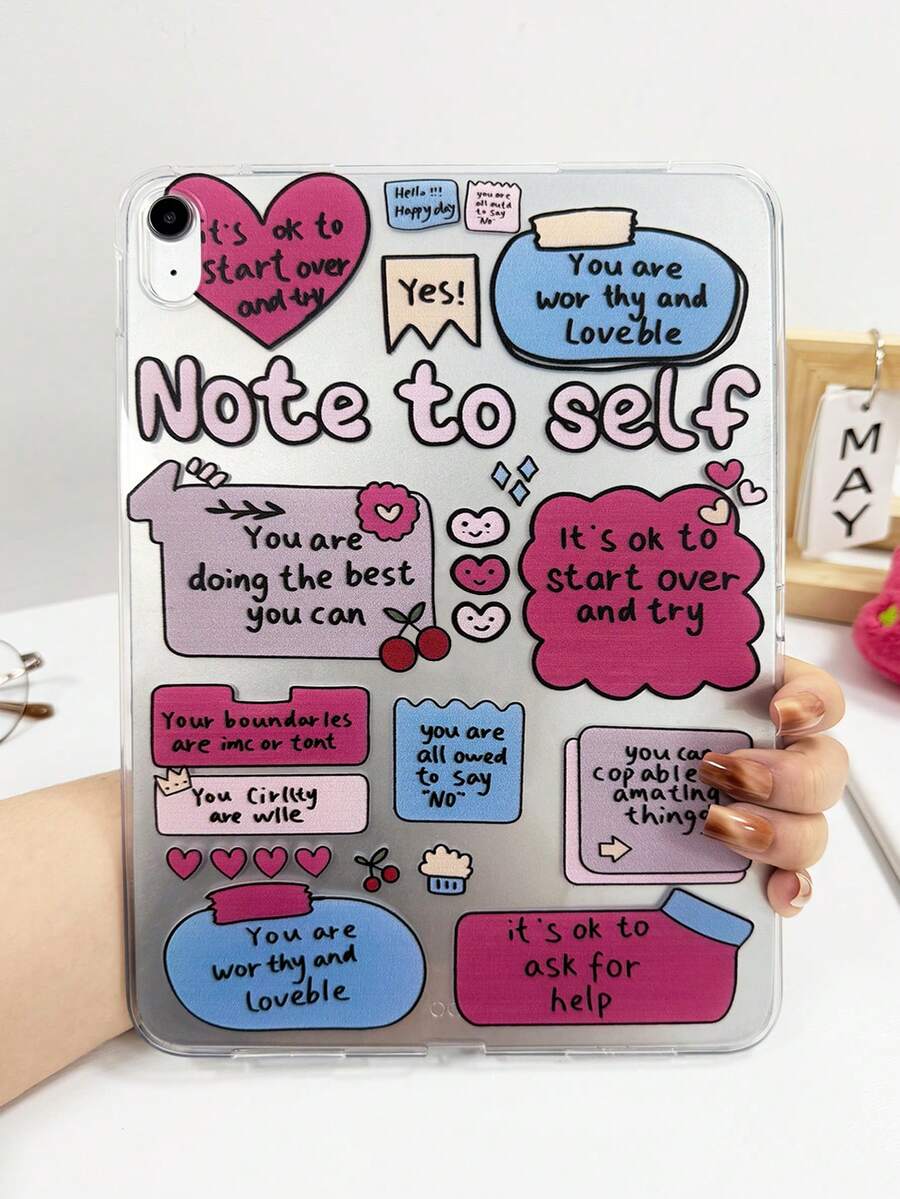 it's ok to
start over
and try
Hello !!!
Happy day
you are
all outd
to say
"No"
Yes!
You are
wor thy and
Loveble
Note to self
You are
doing the best
you can
It's ok to
start over
and try
Your boundarles
are imc or tont
you are
all owed
to say
"NO"
you can
copable
amatlng
things
You Cirllty
are wlle
You are
wor thy and
Loveble
it's ok to
ask for
help
MAY